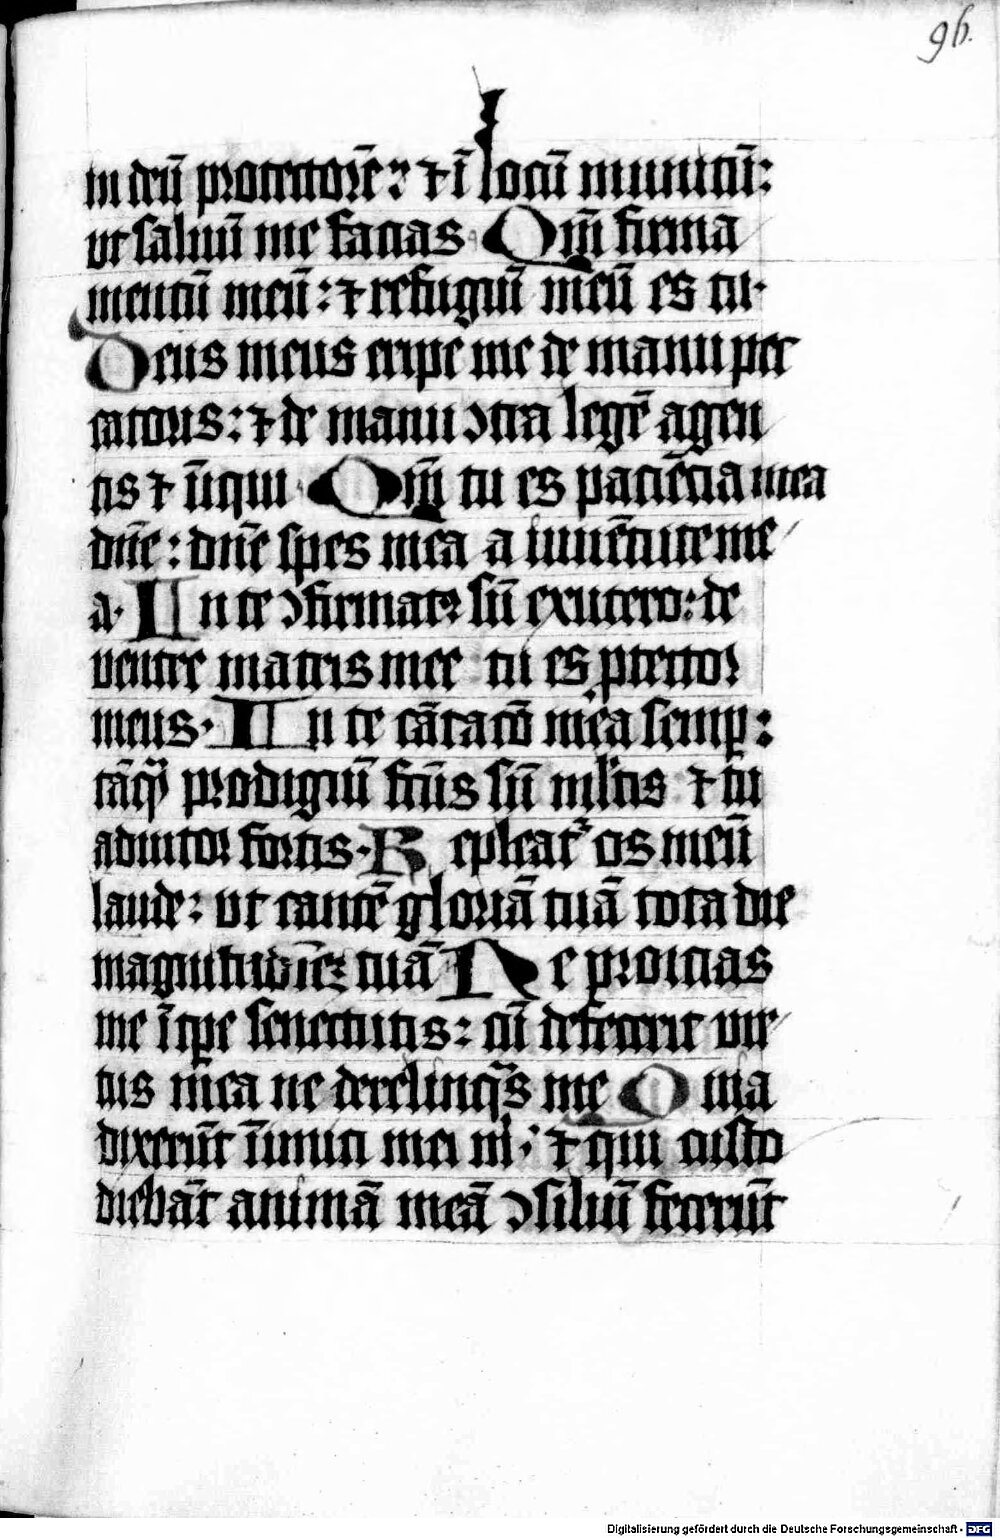 96.
in deū protectorē: ⁊ ī locū munitū:
ut saluū me facias Qm̄ firma
mentū meū: ⁊ refugiū meū es tu·
Deus meus eripe me de manu pec
catoris: ⁊ de manu ↄtra legē agen
tis ⁊ īiqui Qm̄ tu es paciētia mea
dn̄e: dn̄e spes mea a iuuētute me
a· In te ↄfirmatꝰ sū ex utero: de
uentre matris mee tu es ꝓtector
meus· In te cātatō mea semꝑ:
tāqȝ prodigiū fc̄us sū ml̄tis ⁊ tu
adiutor fortis· Repleatᷣ os meū
laude: ut cantē gloriā tuā tota die
magnitudinē tuā Ne proicias
me ī tꝑe senectutis: cū defecerit uir
tus mea ne derelinqᷤs me Quia
dixerūt īimici mei m̄: ⁊ qui custo
diebāt animā meā ↄsiliū fecerūt
Digitalisierung gefördert durch die Deutsche Forschungsgemeinschaft - DFG